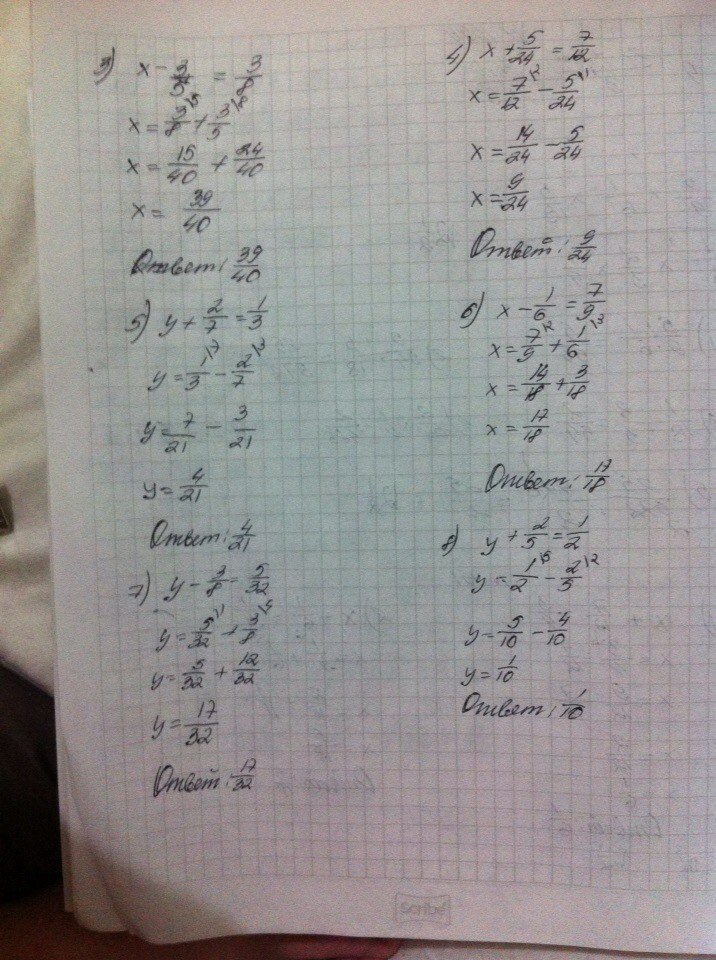 3) x - 3/5 = 3/8
x = 3/8 \5 + 3/5 \8
x = 15/40 + 24/40
x = 39/40
Ответ: 39/40
5) y + 2/7 = 1/3
y = 1/3 \7 - 2/7 \3
y = 7/21 - 3/21
y = 4/21
Ответ: 4/21
7) y - 3/8 = 5/32
y = 5/32 \1 + 3/8 \4
y = 5/32 + 12/32
y = 17/32
Ответ: 17/32
4) x + 5/24 = 7/12
x = 7/12 \2 - 5/24 \1
x = 14/24 - 5/24
x = 9/24
Ответ: 9/24
6) x - 1/6 = 7/9
x = 7/9 \2 + 1/6 \3
x = 14/18 + 3/18
x = 17/18
Ответ: 17/18
8) y + 2/5 = 1/2
y = 1/2 \5 - 2/5 \2
y = 5/10 - 4/10
y = 1/10
Ответ: 1/10